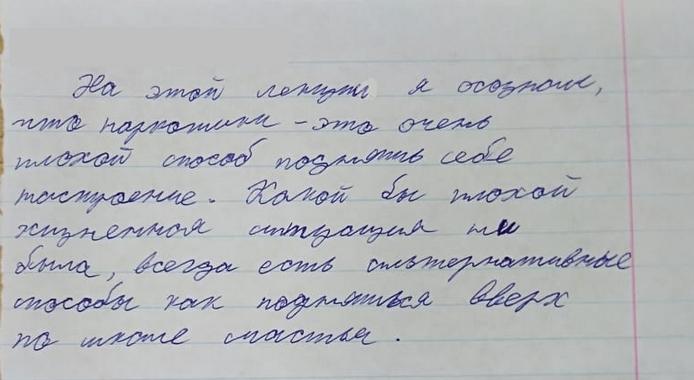 На этой лекции я осознал,
что наркотики - это очень
плохой способ поднять себе
настроение. Какой бы плохой
жизненная ситуация ни
была, всегда есть альтернативные
способы как подняться вверх
по шкале счастья.